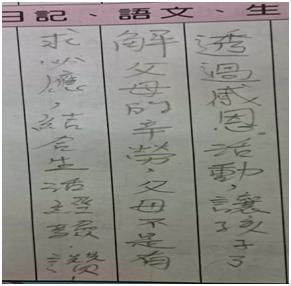 日記、語文、生
透過感恩活動,讓孩子了
解父母的辛勞,父母不是有
求必應,結合生活經驗.讚